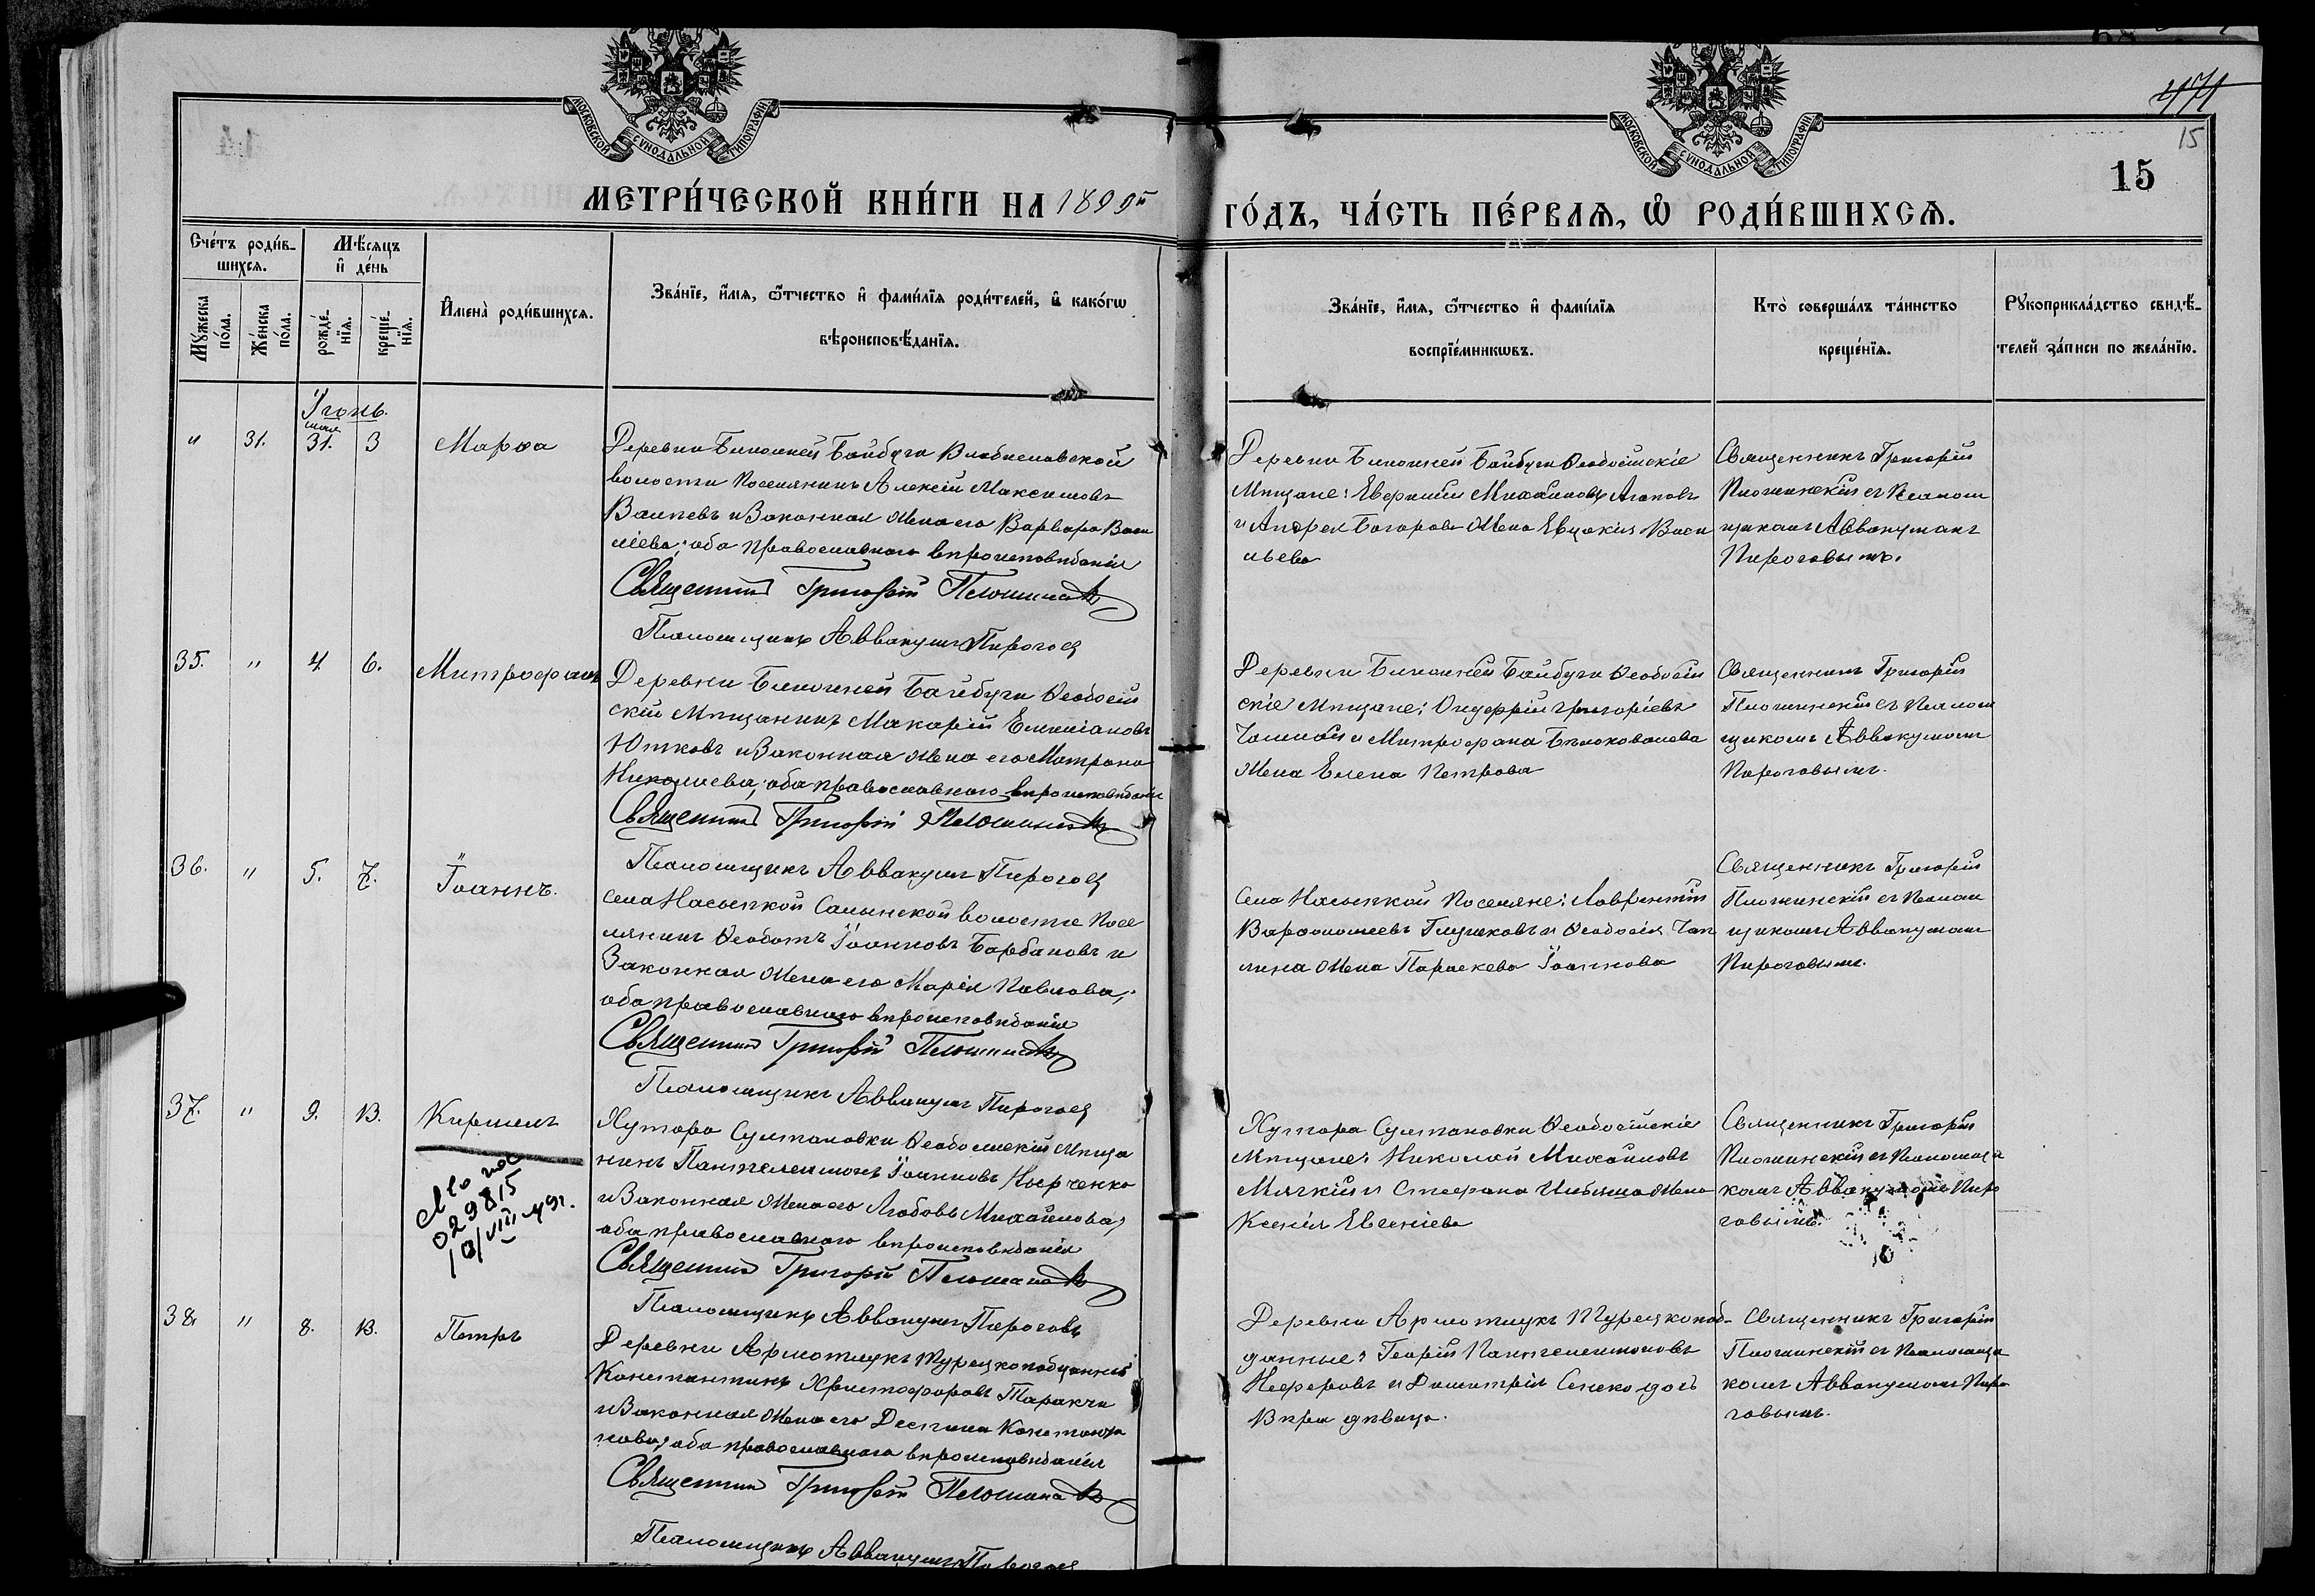 МОСКОВСКОЙ СѴНОДАЛЬНОЙ ТИПОГРАФІИ
МОСКОВСКОЙ СѴНОДАЛЬНОЙ ТИПОГРАФІИ
471
15
15
МЕТРИ́ЧЕСКОЙ КНИ́ГИ НА 1899й
ГО́ДЪ, ЧА́СТЬ ПЕ́РВАѦ, Ѡ РОДИ́ВШИХСѦ.
Счéтъ роди́в-
шихсѧ.
Мꙋ́жеска по́ла.
Же́нска по́ла.
Мѣ́сѧцъ
и҆ де́нь
рожде́-нїѧ.
креще́-нїѧ.
И҆мена̀ роди́вшихсѧ.
Зва́нїе, и҆́мѧ, ѻ҆́тчество и҆ фами́лїѧ роди́телей, и҆ како́гѡ
вѣроисповѣ́данїѧ.
Зва́нїе, и҆́мѧ, ѻ҆́тчество и҆ фами́лїѧ
воспрїе́мникѡвъ.
Кто̀ соверша́лъ та́инство
креще́нїѧ.
Рꙋкоприкла́дство свидѣ́-
телей за́писи по жела́нїю.
Іюнь.
мая
" 31. 31. 3 Марѳа
Деревни Ближней Байбуги Владиславской
волости поселянинъ Алексій Максимовъ
и законная жена его Варвара Васи
ліева; оба православнаго вѣроисповѣданія
Священникъ Григорій
Псаломщикъ Аввакумъ Пирогов
Деревни Ближней Байбуги Ѳеодосійскіе
Мѣщане: Евфимій Михайловъ
и Андрея жена Евдокія Васи
льева
Священникъ Григорій
съ псалом
щикомъ Аввакумомъ
Пироговымъ.
35. " 4. 6. Митрофанъ
Деревни Ближней Байбуги Ѳеодосій
скій Мѣщанинъ Макарій Емиліановъ
Ютковъ и законная жена его Матрона
Николаева; оба православнаго вѣроисповѣданія
Священникъ Григорій
Псаломщикъ Аввакумъ Пирогов
Деревни Ближней Байбуги Ѳеодосій
скіе Мѣщане: Онуфрій Григоріевъ
и Митрофана
жена Елена Петрова
Священникъ Григорій
съ псалом
щикомъ Аввакумомъ
Пироговымъ.
36. " 5. 7. Іоаннъ.
Села Насыпкой Салынской волости посе
лянинъ Ѳеодотъ Іоанновъ Барбановъ и
законная жена его Марія Павлова;
оба православнаго вѣроисповѣданія
Священникъ Григорій
Псаломщикъ Аввакумъ Пирогов
Села Насыпкой поселяне: Лаврентій
Варѳоломеевъ Глушковъ и Ѳеодосія
жена Параскева Іоаннова
Священникъ Григорій
съ псалом
щикомъ Аввакумомъ
Пироговымъ.
37. " 9. 13. Кириллъ
029815
10/VIII-49г.
Хутора Султановки Ѳеодосійскій Мѣща
нинъ Пантелеимонъ Іоанновъ
и законная жена его Любовь Михайлова;
оба православнаго вѣроисповѣданія
Священникъ Григорій
Псаломщикъ Аввакумъ Пироговъ
Хутора Султановки Ѳеодосійскіе
Мѣщане: Николай Михайловъ
Мягкій и Стефана жена
Ксенія Евгеніева
Священникъ Григорій
съ псаломщи
комъ Аввакумомъ Пиро
говымъ.
38. " 8. 13. Петръ
Деревни Армотлукъ Турецкоподданный
Константинъ Христофоровъ Таракчи
и законная жена его Деспина Константи
нова; оба православнаго вѣроисповѣданія
Священникъ Григорій
Псаломщикъ Аввакумъ
Деревни Армотлукъ Турецкопод-
данные: Георгій Пантелеимоновъ
и Димитрія
Вѣра дѣвица.
Священникъ Григорій
съ псаломщи
комъ Аввакумомъ Пиро
говымъ.